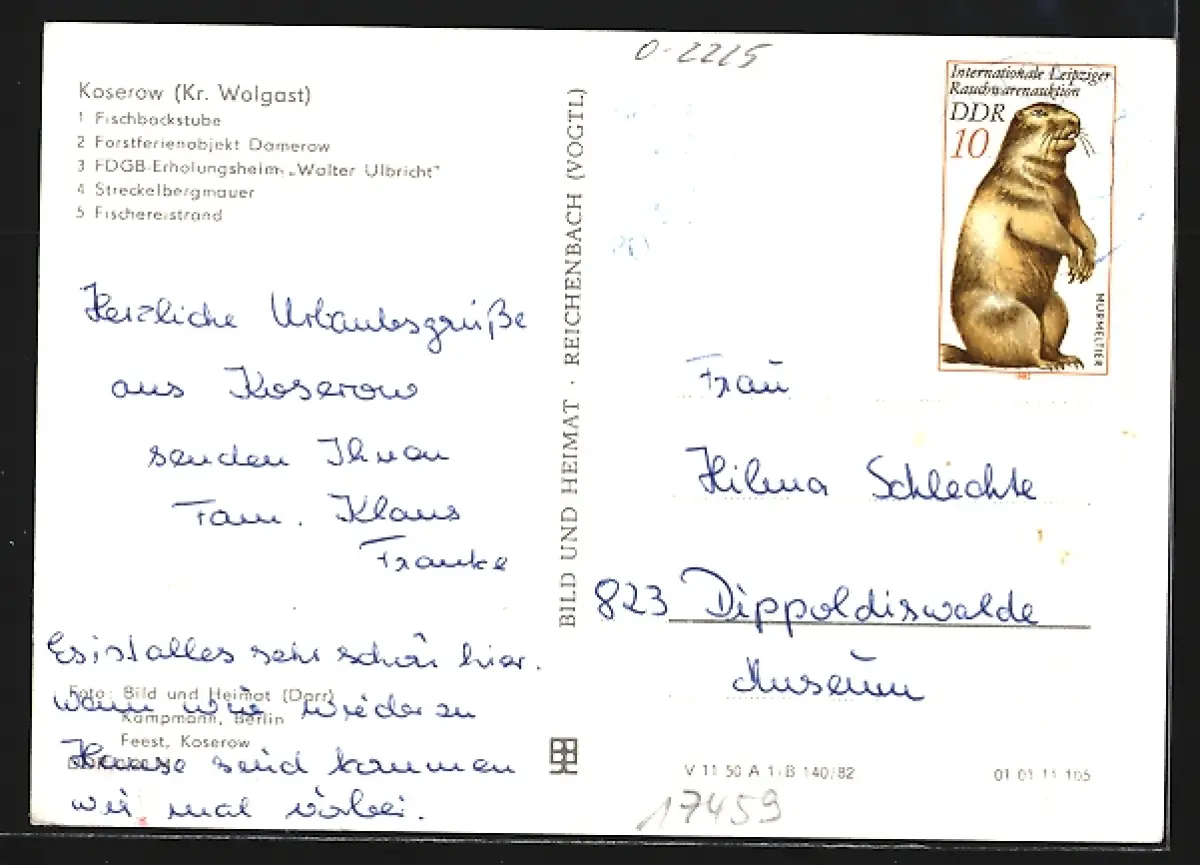 O-2225
Koserow (Kr. Wolgast)
1 Fischbackstube
2 Forstferienobjekt Damerow
3 FDGB-Erholungsheim „Walter Ulbricht"
4 Streckelbergmauer
5 Fischereistrand
Herzliche Urlaubsgrüße
aus Koserow
senden Ihnen
Fam. Klaus
Franke
Es ist alles sehr schön hier.
wenn wir wieder zu
Hause sind kommen
wir mal vorbei.
Foto: Bild und Heimat (Darr)
Kampmann, Berlin
Feest, Koserow
BILD UND HEIMAT · REICHENBACH (VOGTL)
Internationale Leipziger
Rauchwarenauktion
DDR
10
MURMELTIER
1982
Frau
Hilma Schlechte
823 Dippoldiswalde
Museum
V 11 50 A 1/B 140/82
01 01 11 105
17459